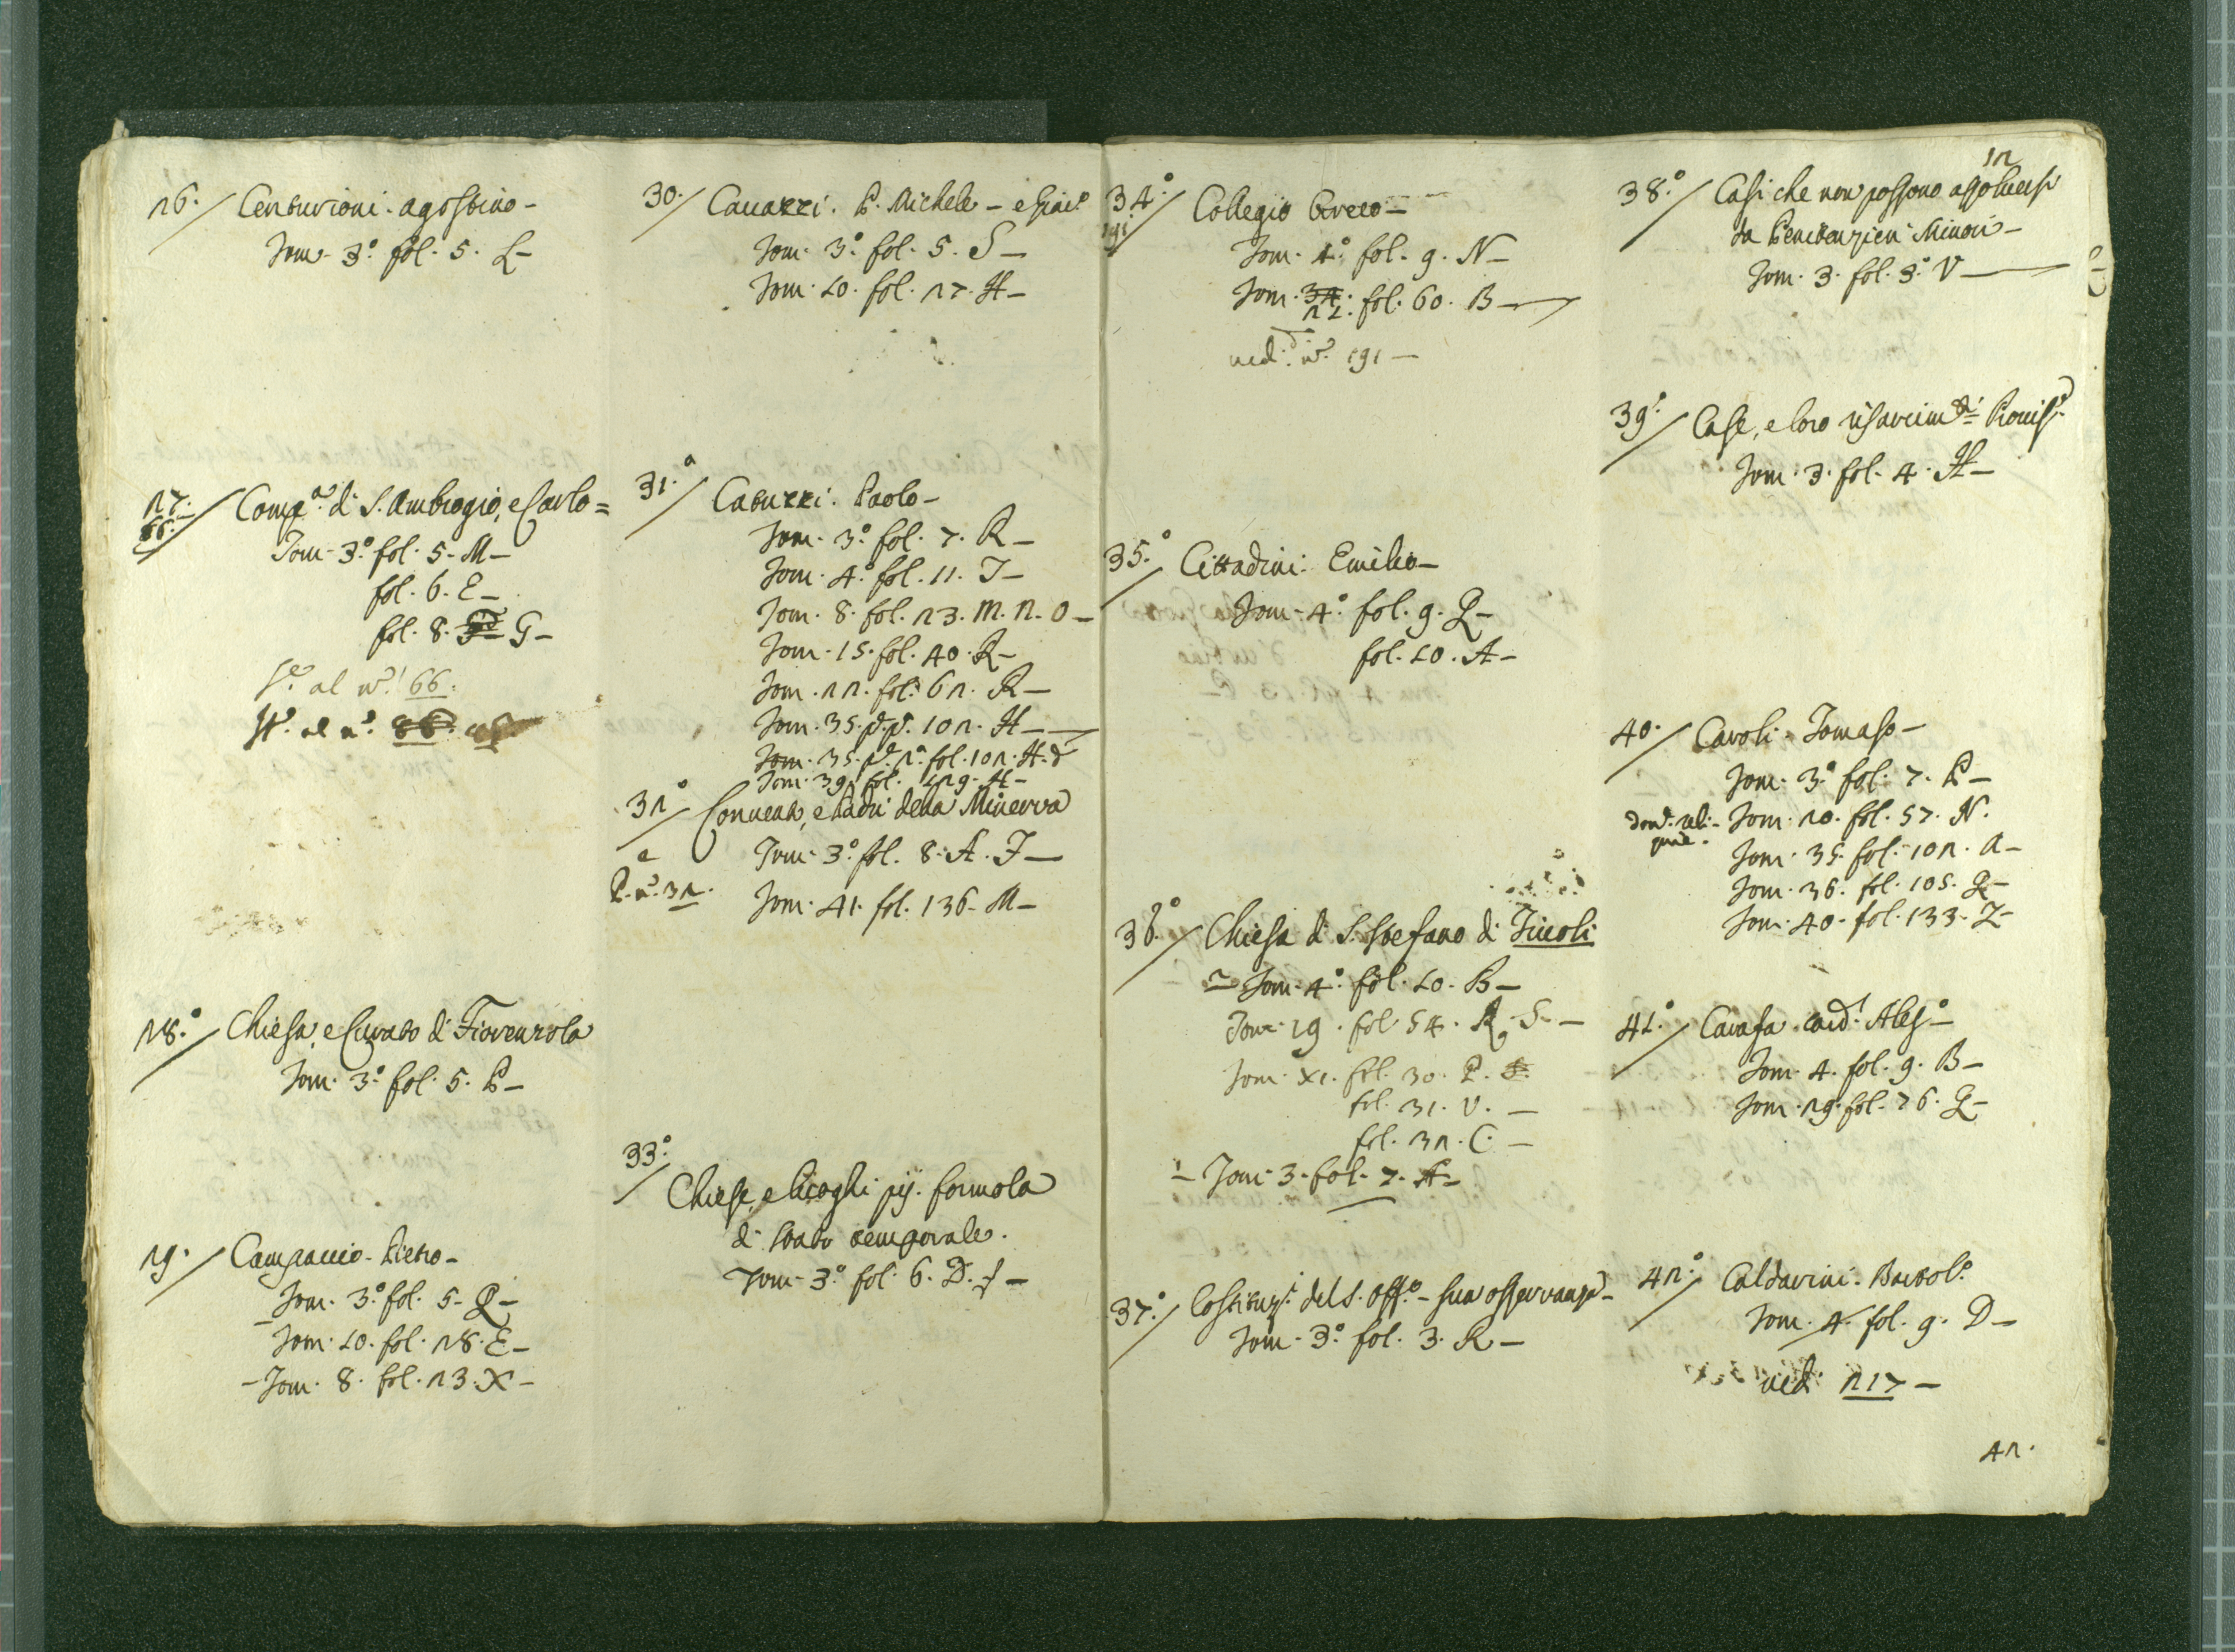 26. Centurioni. Agostino -
Tom. 3.º fol. 5. L -
27. Comp.ª di S. Ambrogio, e Carlo =
66.
Tom. 3.º fol. 5. M -
fol. 6. E -
fol. 8. G -
al n.º 66.
al n.º 86.
28.º Chiesa, e Curato di Fiorenzola
Tom. 3.º fol. 5. P -
29. Campaccio. Pietro -
Tom. 3.º fol. 5. Q -
Tom. 10. fol. 28. E -
- Tom. 8. fol. 23. X -
30. Cavazzi. P. Michele - e Giac.º
Tom. 3.º fol. 5. S -
Tom. 10. fol. 27. H -
31.º Catuzzi. Paolo -
Tom. 3.º fol. 7. R -
Tom. 4.º fol. 11. I -
Tom. 8. fol. 23. M. N. O -
Tom. 15. fol. 40. R -
Tom. 22. fol. 62. R -
Tom. 35. 102. H -
Tom. 35. p.ª 2.ª fol. 102. H.
Tom. 39. fol. 129. H -
32º Convento, e Padri della Minerva
Tom. 3.º fol. 8. A. I -
e P. n.º 32.
Tom. 41. fol. 136. M -
33.º
Chiese, e Luoghi pij. formola
di Stato temporale.
Tom. 3.º fol. 6. D. f -
34.º Collegio Greco -
191
Tom. 4.º fol. 9. N -
Tom. 34. fol. 60. B -
21.
ved. n.º 191 -
35.º Cittadini. Emilio -
Tom. 4.º fol. 9. Q -
fol. 10. A -
36.º Chiesa di S. Stefano di Tivoli
2 Tom. 4.º fol. 10. B -
Tom. 19. fol. 54. R. S -
Tom. XI. fol. 30. P. S.
fol. 31. V. -
fol. 32. C. -
1 - Tom. 3. fol. 7. A -
37.º Costituz.i del S. Off.º - sua osservanza -
Tom. 3.º fol. 3. R -
12
38.º Casi che non possono assolversi
da Penitenzieri Minori -
Tom. 3. fol. 3.º V -
39.º Case, e loro risarcim.ti
Tom. 3. fol. 4. H -
40. Caroli. Tomaso -
Tom. 3.º fol. 7. P -
Tom. 20. fol. 57. N.
Tom. 35. fol. 102. A -
Tom. 36. fol. 105. Q -
Tom. 40. fol. 133. Z -
41.º Carafa. Card. Ales.º -
Tom. 4. fol. 9. B -
Tom. 29. fol. 76. Q -
42.º Caldarini. Bartol.º
Tom. 4. fol. 9. D -
ved. 217 -
42.